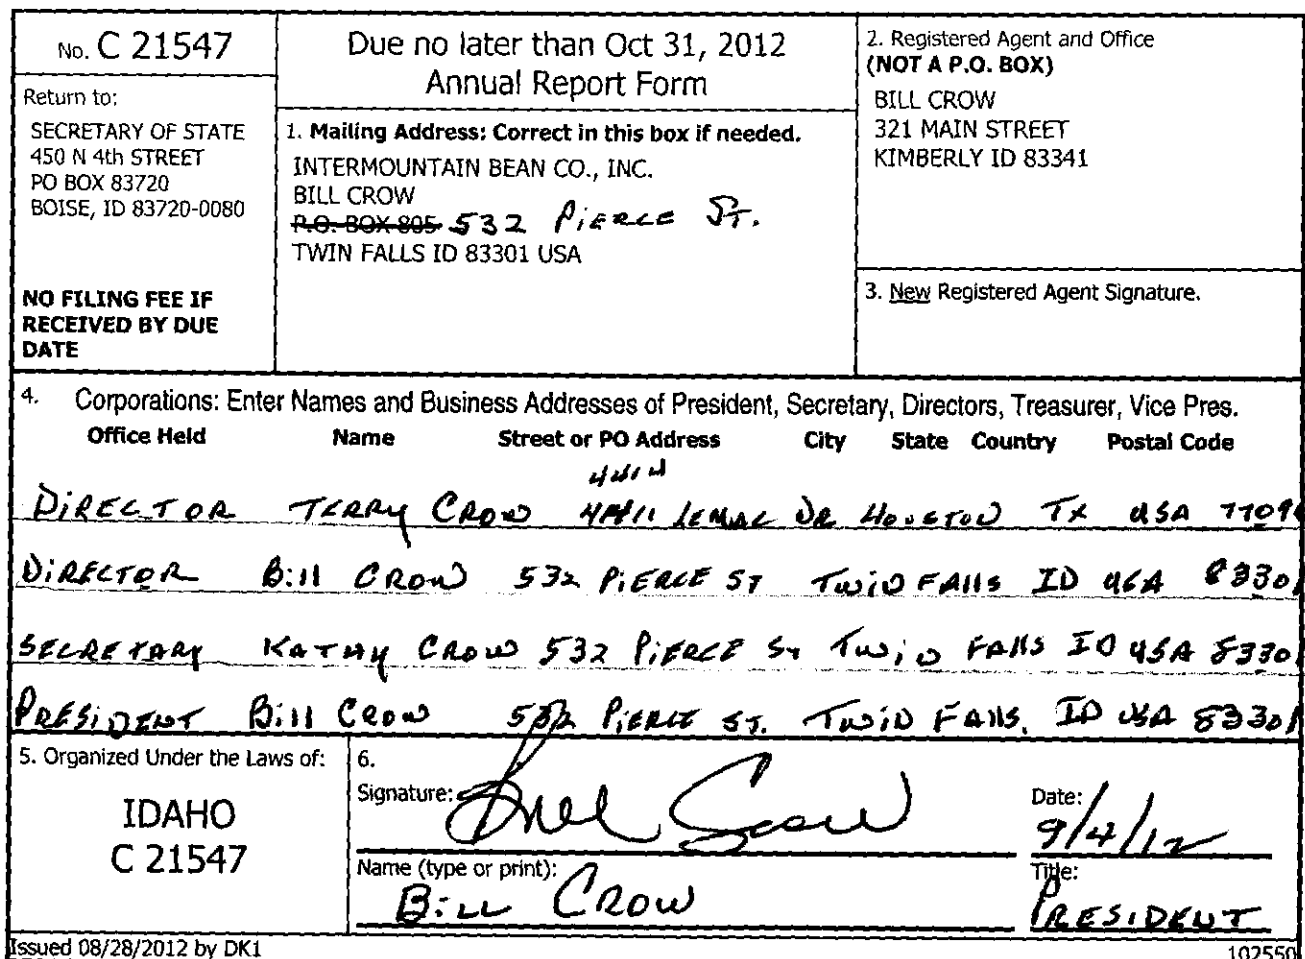 No. C 21547
Return to:
SECRETARY OF STATE
450 N 4th STREET
PO BOX 83720
BOISE, ID 83720-0080
NO FILING FEE IF
RECEIVED BY DUE
DATE
Due no later than Oct 31, 2012
Annual Report Form
1. Mailing Address: Correct in this box if needed.
INTERMOUNTAIN BEAN CO., INC.
BILL CROW
P.O. BOX 805 532 PIERCE ST.
TWIN FALLS ID 83301 USA
2. Registered Agent and Office
(NOT A P.O. BOX)
BILL CROW
321 MAIN STREET
KIMBERLY ID 83341
3. New Registered Agent Signature.
4. Corporations: Enter Names and Business Addresses of President, Secretary, Directors, Treasurer, Vice Pres.
Office Held Name Street or PO Address City State Country Postal Code
DIRECTOR TERRY CROW LEMAC DR HOUSTON TX USA
DIRECTOR Bill CROW 532 PIERCE ST TWIN FALLS ID USA 83301
SECRETARY KATHY CROW 532 PIERCE ST TWIN FALLS ID USA 83301
PRESIDENT Bill CROW 532 PIERCE ST. TWIN FALLS, ID USA 83301
5. Organized Under the Laws of:
IDAHO
C 21547
6.
Signature: Bill Crow
Date:
9/4/12
Name (type or print):
BILL CROW
Title:
PRESIDENT
Issued 08/28/2012 by DK1
102550